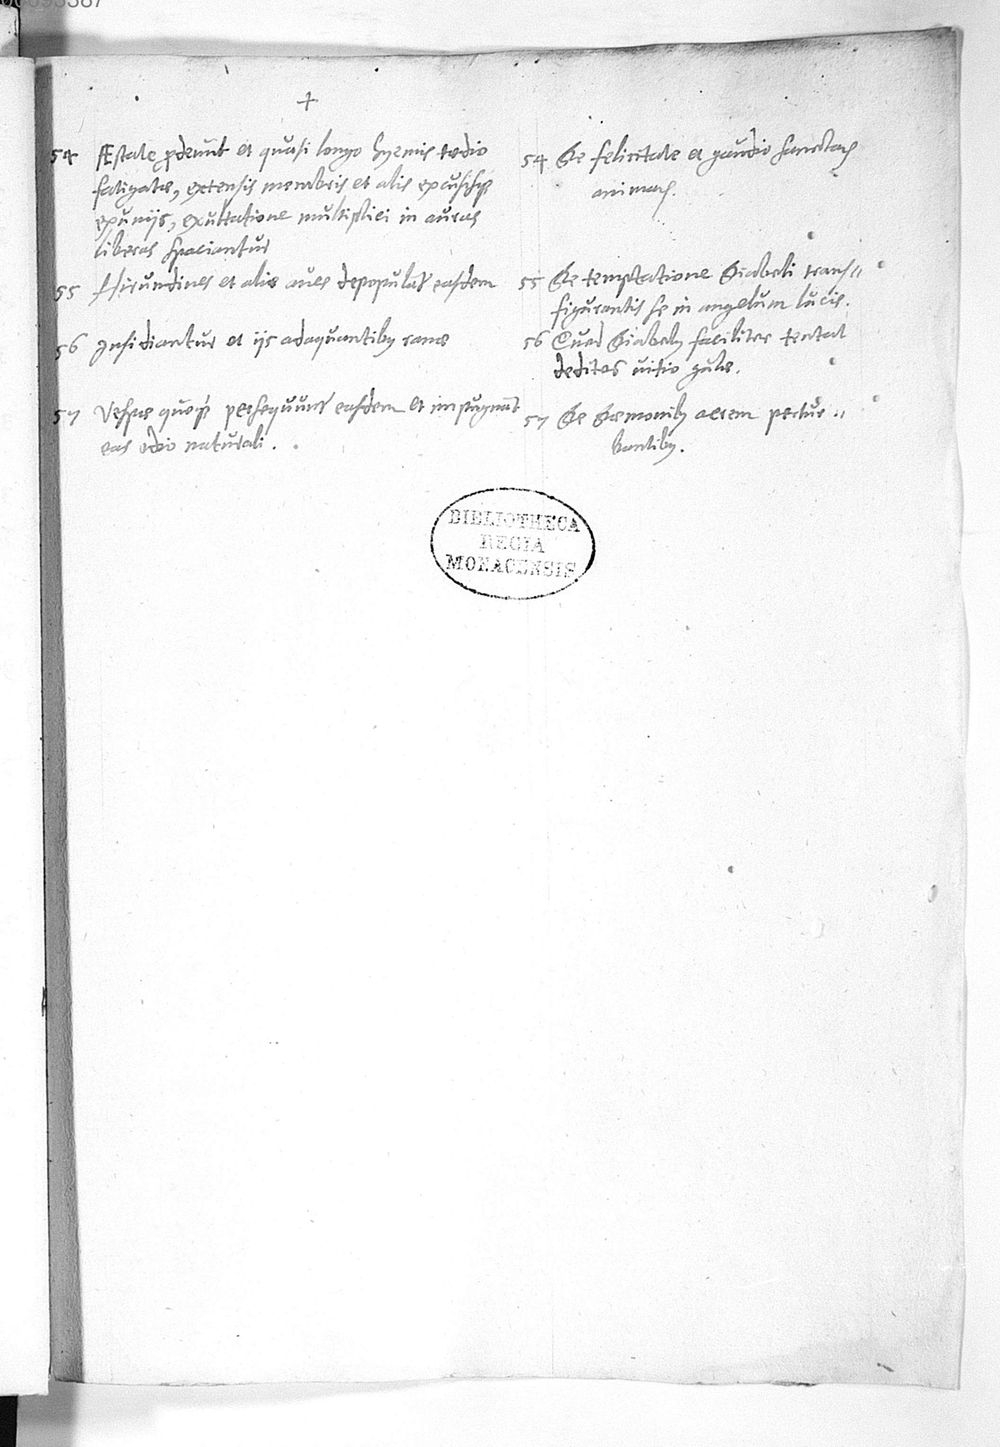 +
54 Æstate ꝓdeunt et quasi longo hyemis tedio
fatigatæ, extensis membris et alis excussisqꝫ
exuuijs, exultatione multiplici in auras
liberas spaciantur
55 Hirundines et aliæ aues depopulãtʳ easdem
56 Insidiantur et ijs adaquantibꝰ ranæ
57 Vespæ quoqꝫ persequuntʳ easdem et impugnãt
eas odio naturali.
54 De felicitate et gaudio sanctaꝝ
animaꝝ.
55 De temptatione Diaboli trans〃
figurantis se in angelum lucis.
56 Quod Diabolꝰ faciliter tentat
deditos uitio gulæ.
57 De Dæmonibꝰ aerem pertur〃
bantibꝰ.
BIBLIOTHECA
REGIA
MONACENSIS